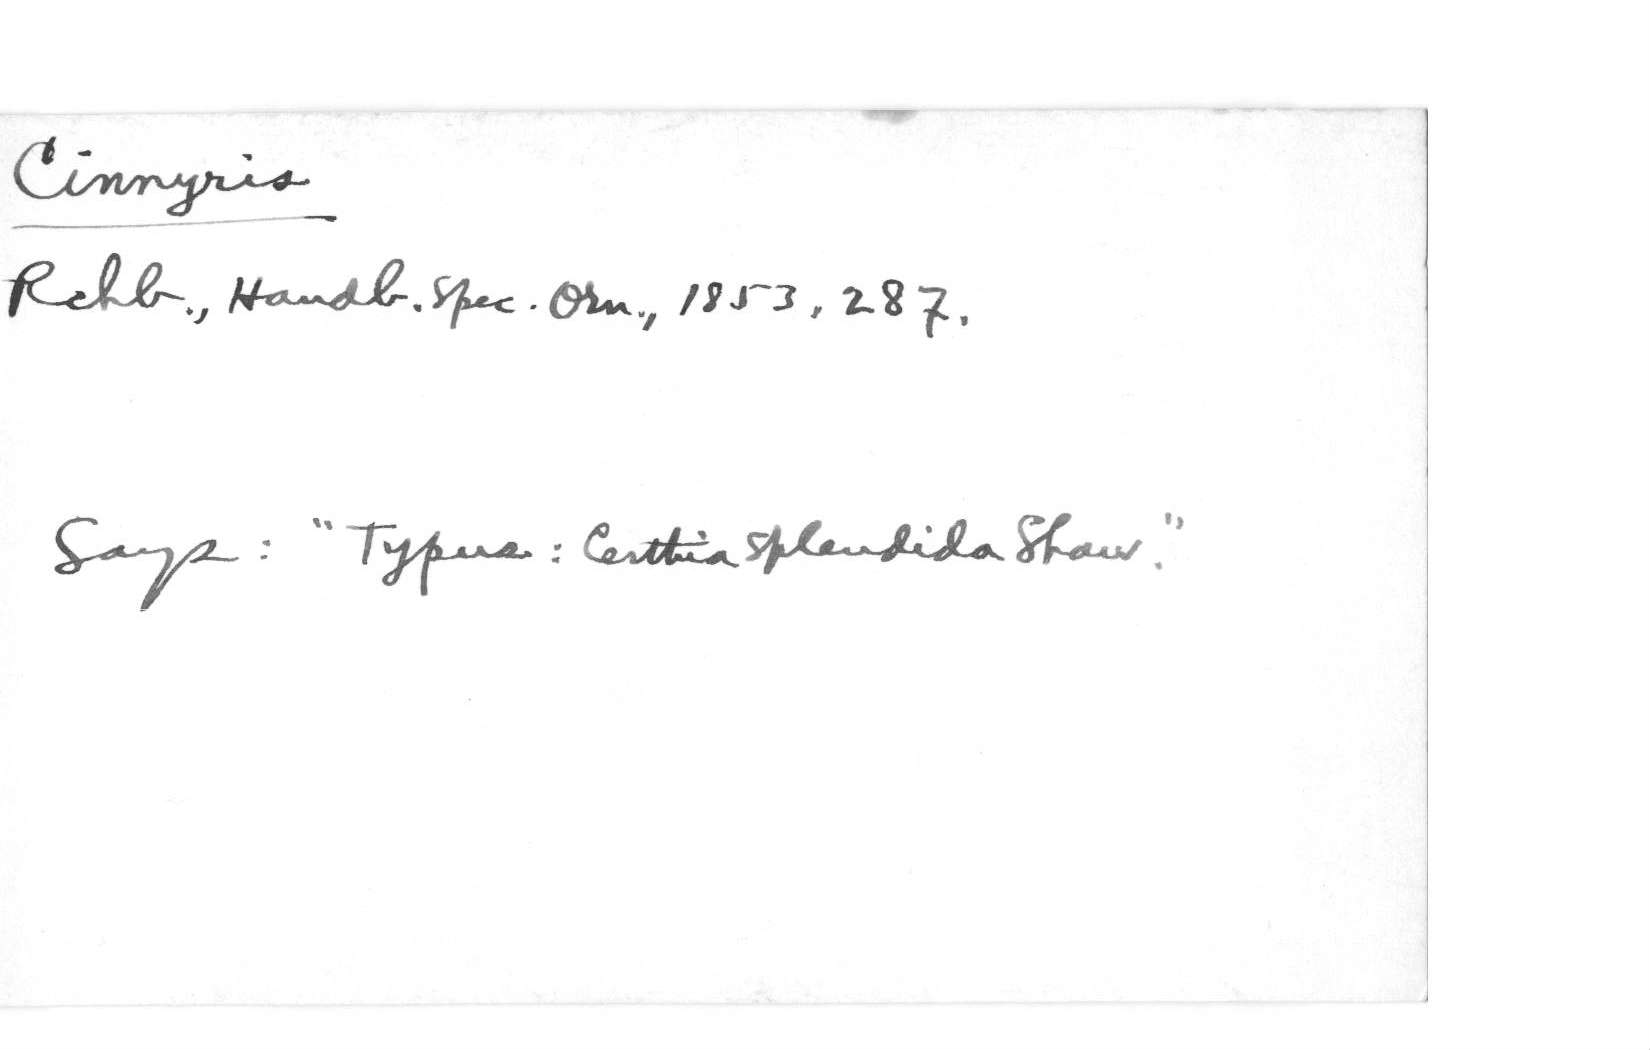 Cinnyris
Rchb., Handb. Spec. Orn., 1853, 287.
Says: "Typus: Certhia splendida Shaw."